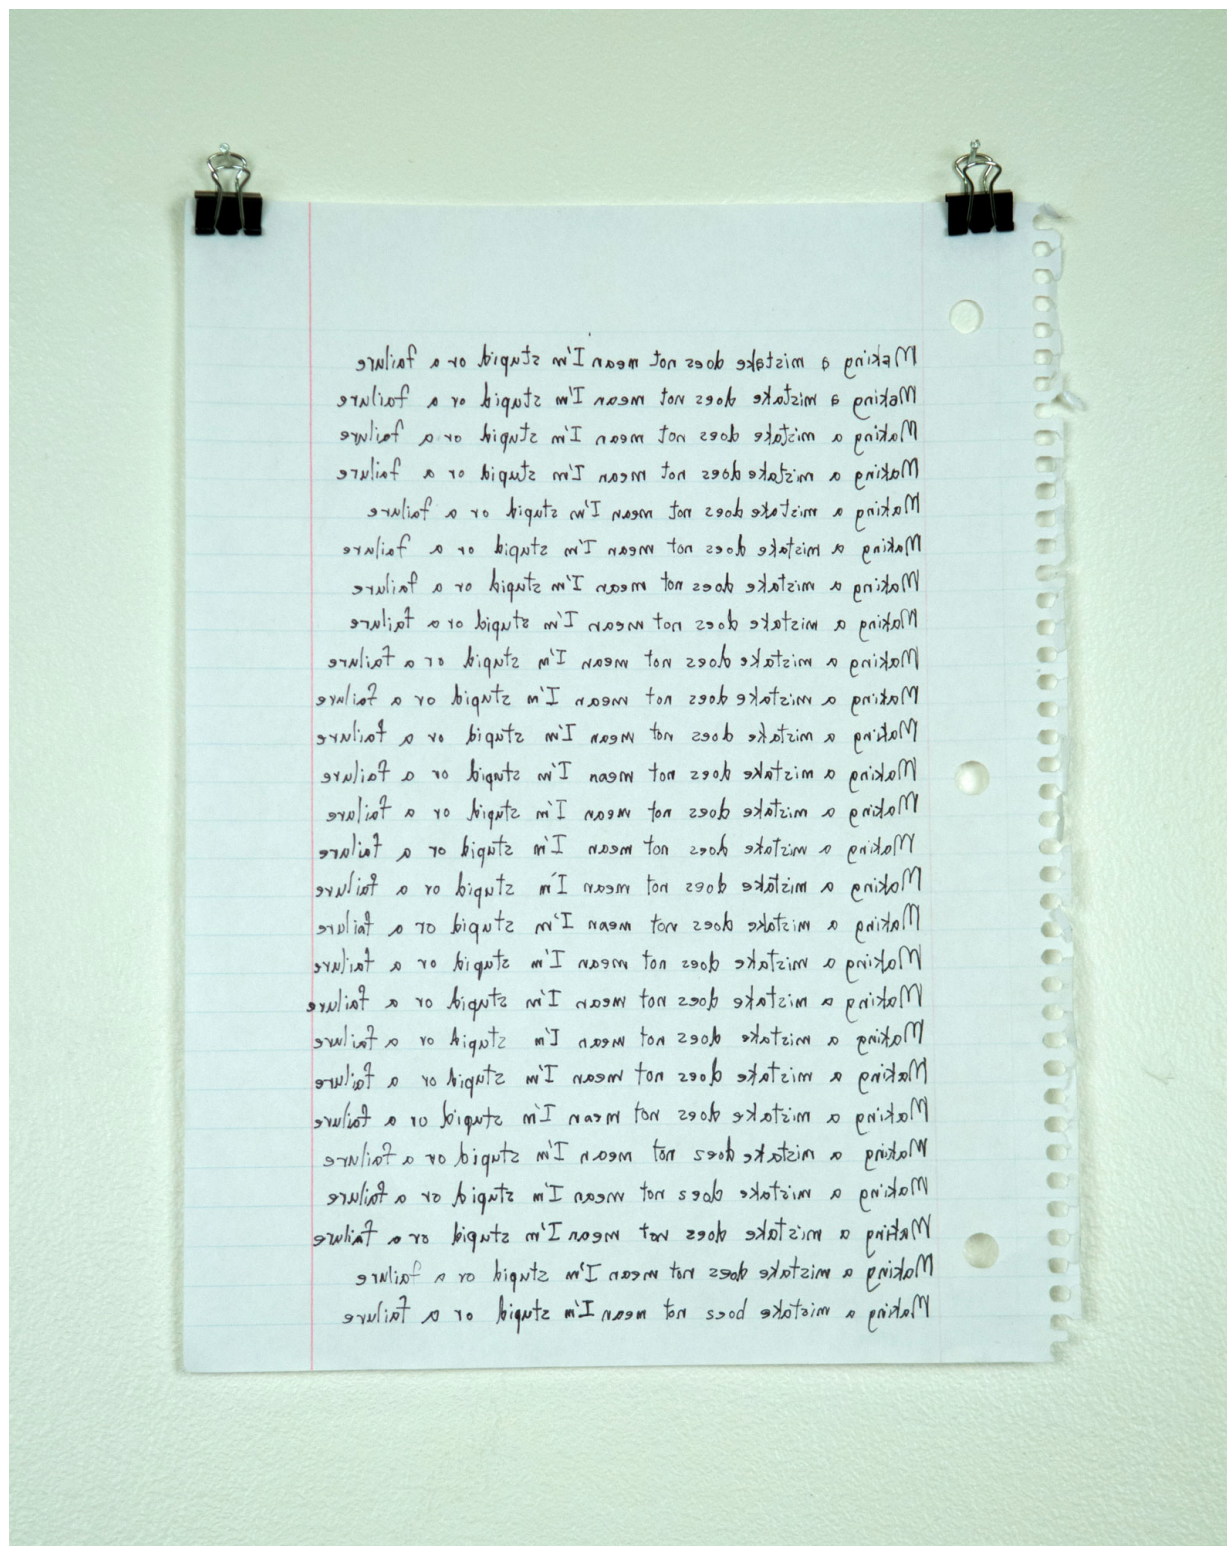 Making a mistake does not mean I'm stupid or a failure
Making a mistake does not mean I'm stupid or a failure
Making a mistake does not mean I'm stupid or a failure
Making a mistake does not mean I'm stupid or a failure
Making a mistake does not mean I'm stupid or a failure
Making a mistake does not mean I'm stupid or a failure
Making a mistake does not mean I'm stupid or a failure
Making a mistake does not mean I'm stupid or a failure
Making a mistake does not mean I'm stupid or a failure
Making a mistake does not mean I'm stupid or a failure
Making a mistake does not mean I'm stupid or a failure
Making a mistake does not mean I'm stupid or a failure
Making a mistake does not mean I'm stupid or a failure
Making a mistake does not mean I'm stupid or a failure
Making a mistake does not mean I'm stupid or a failure
Making a mistake does not mean I'm stupid or a failure
Making a mistake does not mean I'm stupid or a failure
Making a mistake does not mean I'm stupid or a failure
Making a mistake does not mean I'm stupid or a failure
Making a mistake does not mean I'm stupid or a failure
Making a mistake does not mean I'm stupid or a failure
Making a mistake does not mean I'm stupid or a failure
Making a mistake does not mean I'm stupid or a failure
Making a mistake does not mean I'm stupid or a failure
Making a mistake does not mean I'm stupid or a failure
Making a mistake does not mean I'm stupid or a failure